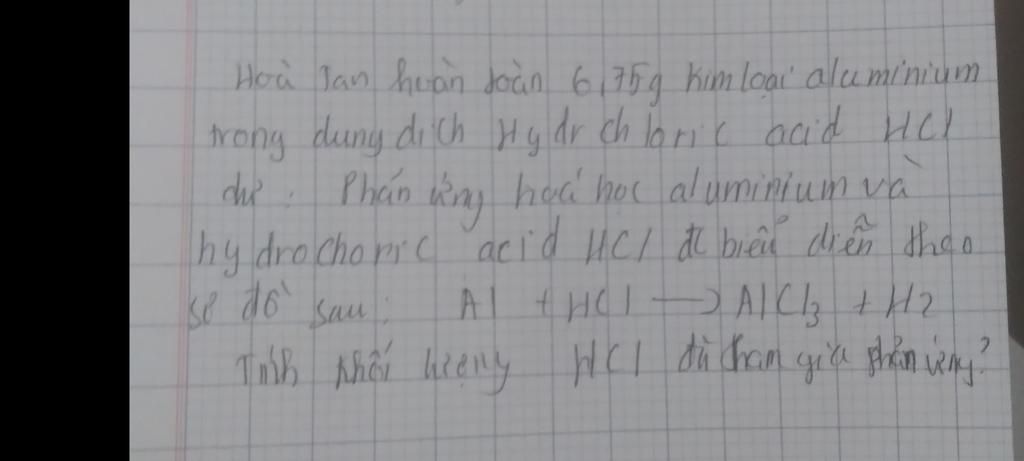 Hoà Tan hoàn toàn 6,75g kim loại aluminium
trong dung dịch Hydrchloric acid HCl
dư. Phản ứng hoá học aluminium và
hydrochoric acid HCl đc biểu diễn theo
sơ đồ sau: Al + HCl → AlCl3 + H2
Tính khối lượng HCl đã tham gia phản ứng?